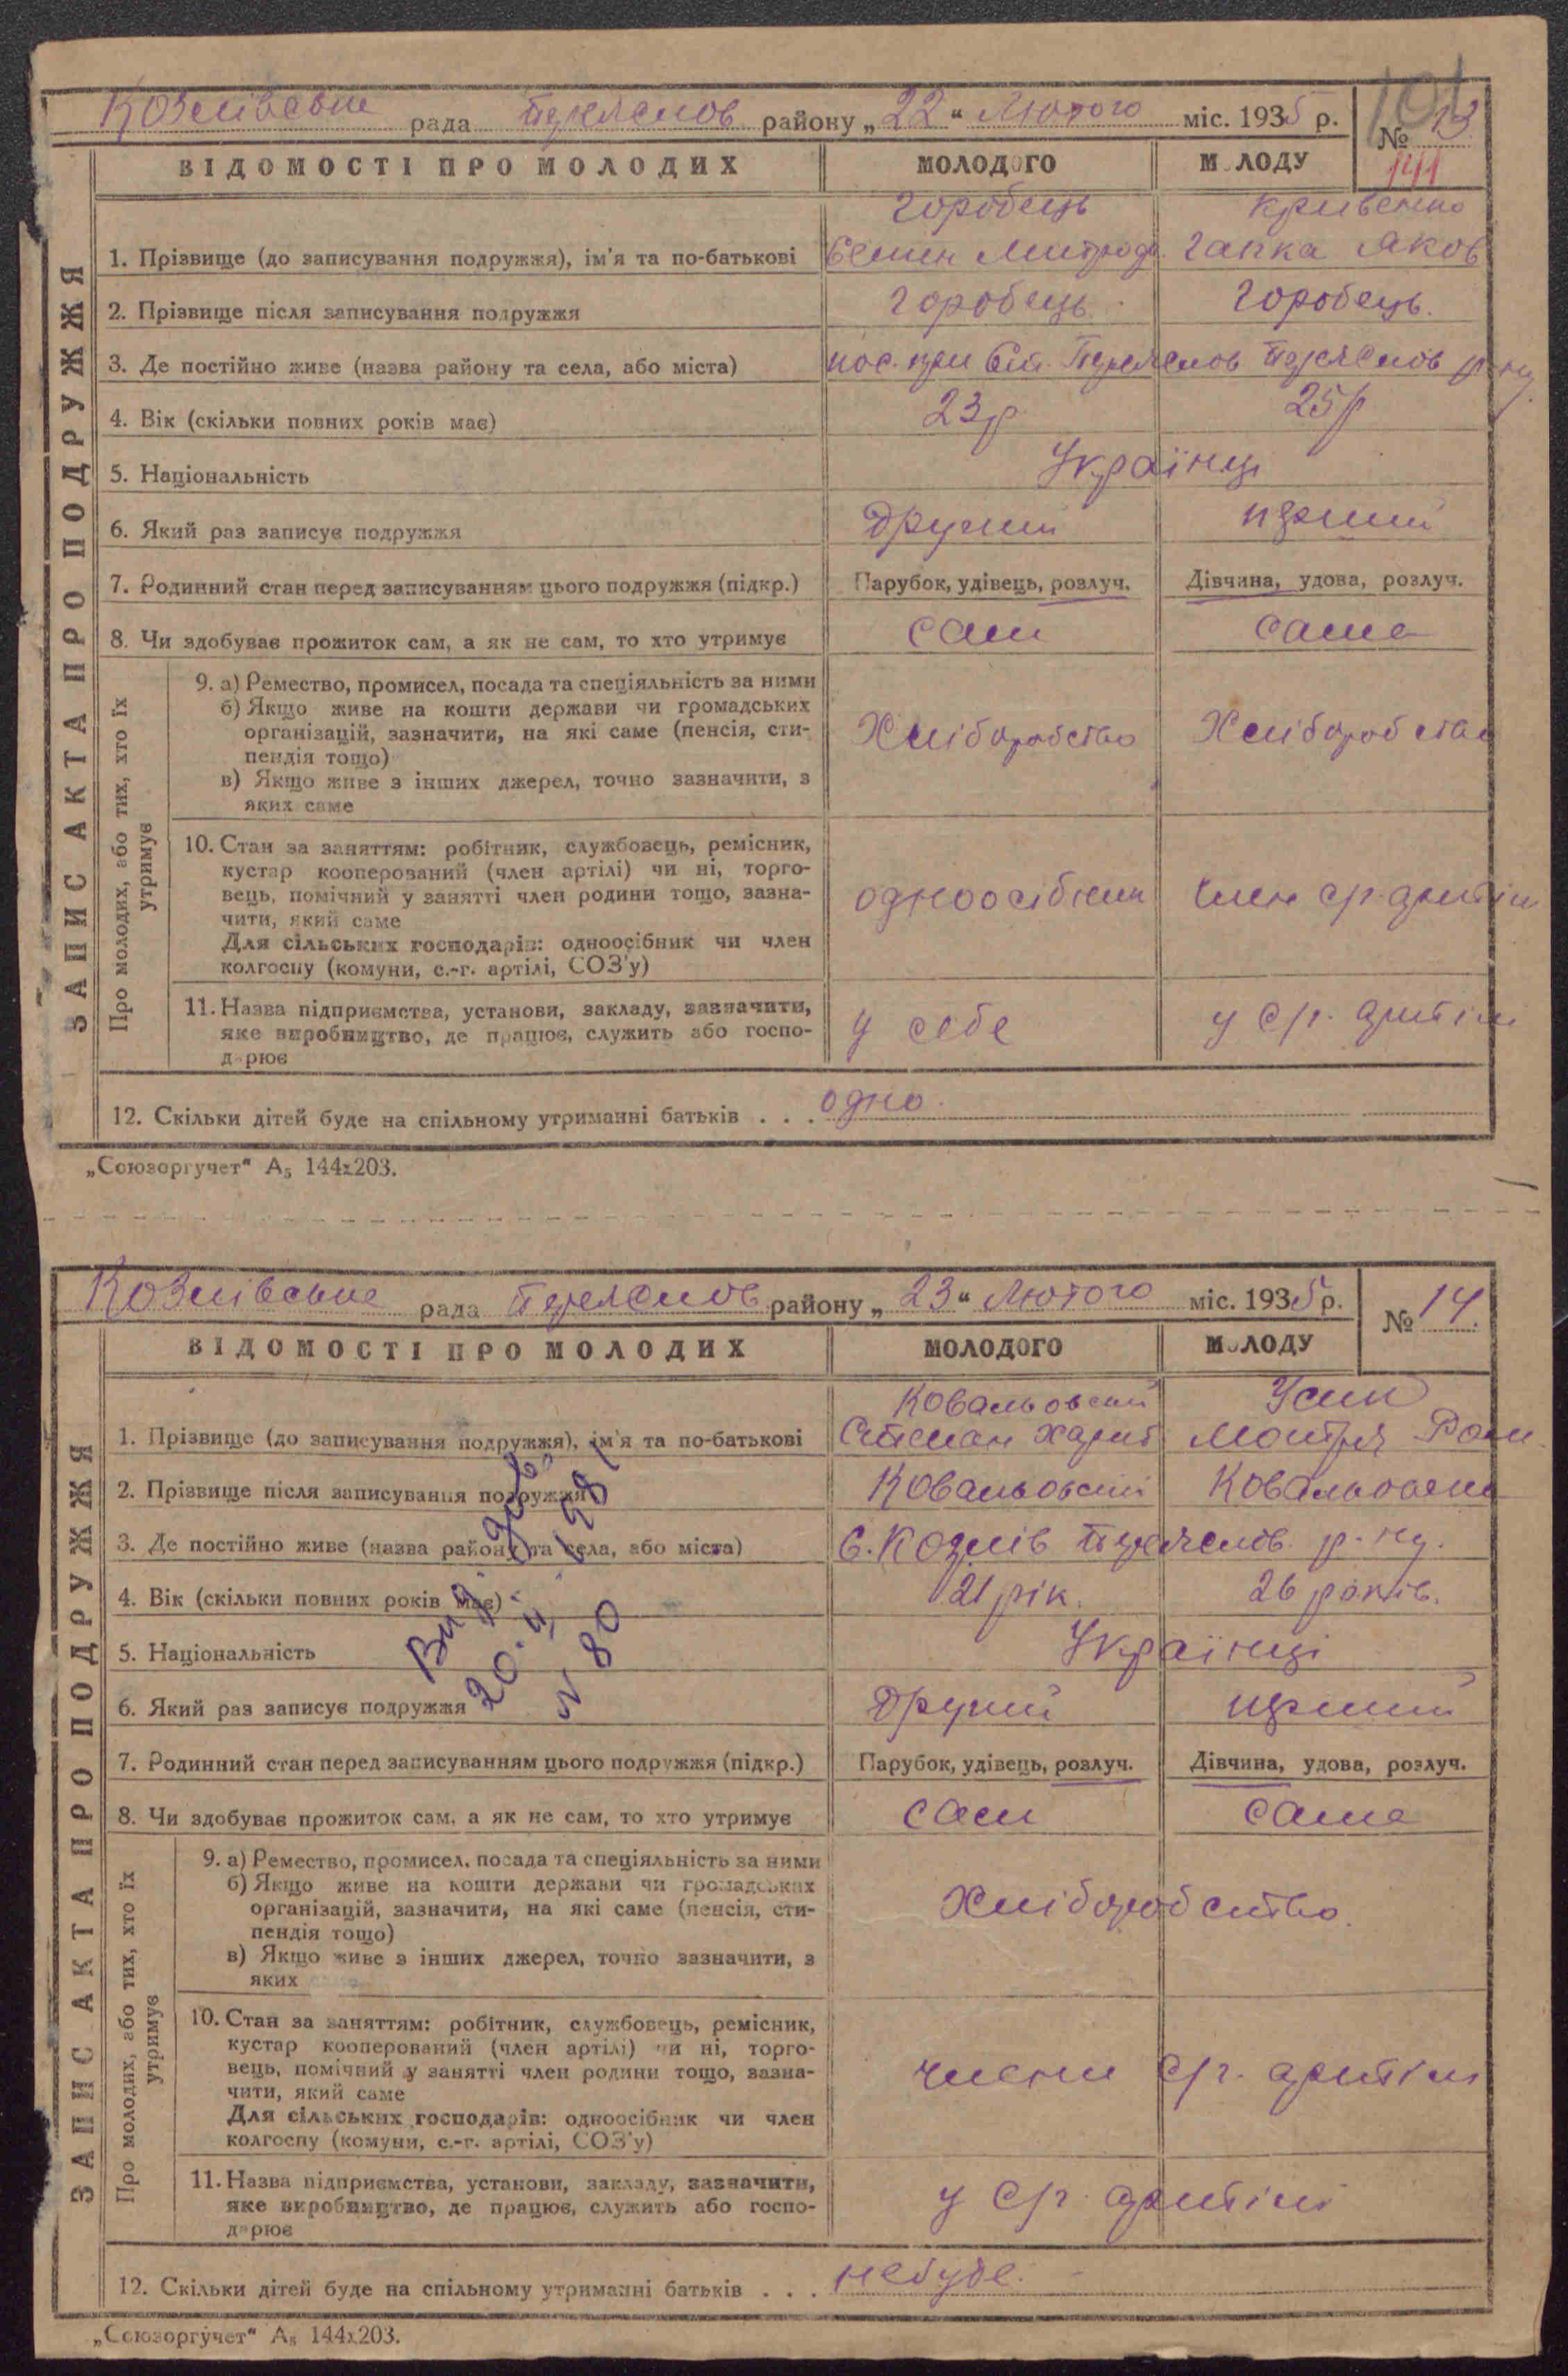 101
Козлівська рада Переяслов району „22“ Лютого міс. 1935 р. № 13
141
ВІДОМОСТІ ПРО МОЛОДИХ МОЛОДОГО МОЛОДУ
ЗАПИС АКТА ПРО ПОДРУЖЖЯ
Горобець Кривенко
1. Прізвище (до записування подружжя), ім'я та по-батькові Семен Митроф. Гапка Яков
2. Прізвище після записування подружжя Горобець. Горобець.
3. Де постійно живе (назва району та села, або міста) пос. при Переяслов Переяслов р-ну
4. Вік (скільки повних років має) 23р 25р
5. Національність Українці
6. Який раз записує подружжя Другий перший
7. Родинний стан перед записуванням цього подружжя (підкр.) Парубок, удівець, розлуч. Дівчина, удова, розлуч.
8. Чи здобуває прожиток сам, а як не сам, то хто утримує сам сама
Про молодих, або тих, хто їх утримує
9. а) Ремество, промисел, посада та спеціяльність за ними
б) Якщо живе на кошти держави чи громадських
організацій, зазначити, на які саме (пенсія, сти-
пендія тощо)
в) Якщо живе з інших джерел, точно зазначити, з
яких саме
Хліборобство Хліборобство
10. Стан за заняттям: робітник, службовець, ремісник,
кустар кооперований (член артілі) чи ні, торго-
вець, помічний у занятті член родини тощо, зазна-
чити, який саме
Для сільських господарів: одноосібник чи член
колгоспу (комуни, с.-г. артілі, СОЗ'у)
одноосібник член с/г. артіли
11. Назва підприємства, установи, закладу, зазначити,
яке виробництво, де працює, служить або госпо-
дарює
у себе у с/г. артіли
12. Скільки дітей буде на спільному утриманні батьків . . . одно.
„Союзоргучет“ А5 144х203.
Козлівська рада Переяслов району „23“ Лютого міс. 1935 р. № 14.
ВІДОМОСТІ ПРО МОЛОДИХ МОЛОДОГО МОЛОДУ
ЗАПИС АКТА ПРО ПОДРУЖЖЯ
Ковальовский Усик
1. Прізвище (до записування подружжя), ім'я та по-батькові Степан Харит Мотря Ром.
2. Прізвище після записування подружжя Ковальовский Ковальовска
3. Де постійно живе (назва району та села, або міста) С. Козлів Переяслов. р-ну.
4. Вік (скільки повних років має) 21 рік. 26 років.
5. Національність Українці
6. Який раз записує подружжя Другий перший
20.
№ 80
7. Родинний стан перед записуванням цього подружжя (підкр.) Парубок, удівець, розлуч. Дівчина, удова, розлуч.
8. Чи здобуває прожиток сам, а як не сам, то хто утримує сам сама
Про молодих, або тих, хто їх утримує
9. а) Ремество, промисел, посада та спеціяльність за ними
б) Якщо живе на кошти держави чи громадських
організацій, зазначити, на які саме (пенсія, сти-
пендія тощо)
в) Якщо живе з інших джерел, точно зазначити, з
яких
Хліборобство.
10. Стан за заняттям: робітник, службовець, ремісник,
кустар кооперований (член артілі) чи ні, торго-
вець, помічний у занятті член родини тощо, зазна-
чити, який саме
Для сільських господарів: одноосібник чи член
колгоспу (комуни, с.-г. артілі, СОЗ'у)
члени с/г. артіли
11. Назва підприємства, установи, закладу, зазначити,
яке виробництво, де працює, служить або госпо-
дарює
у с/г. артілі
12. Скільки дітей буде на спільному утриманні батьків . . . небуде.
„Союзоргучет“ А5 144х203.